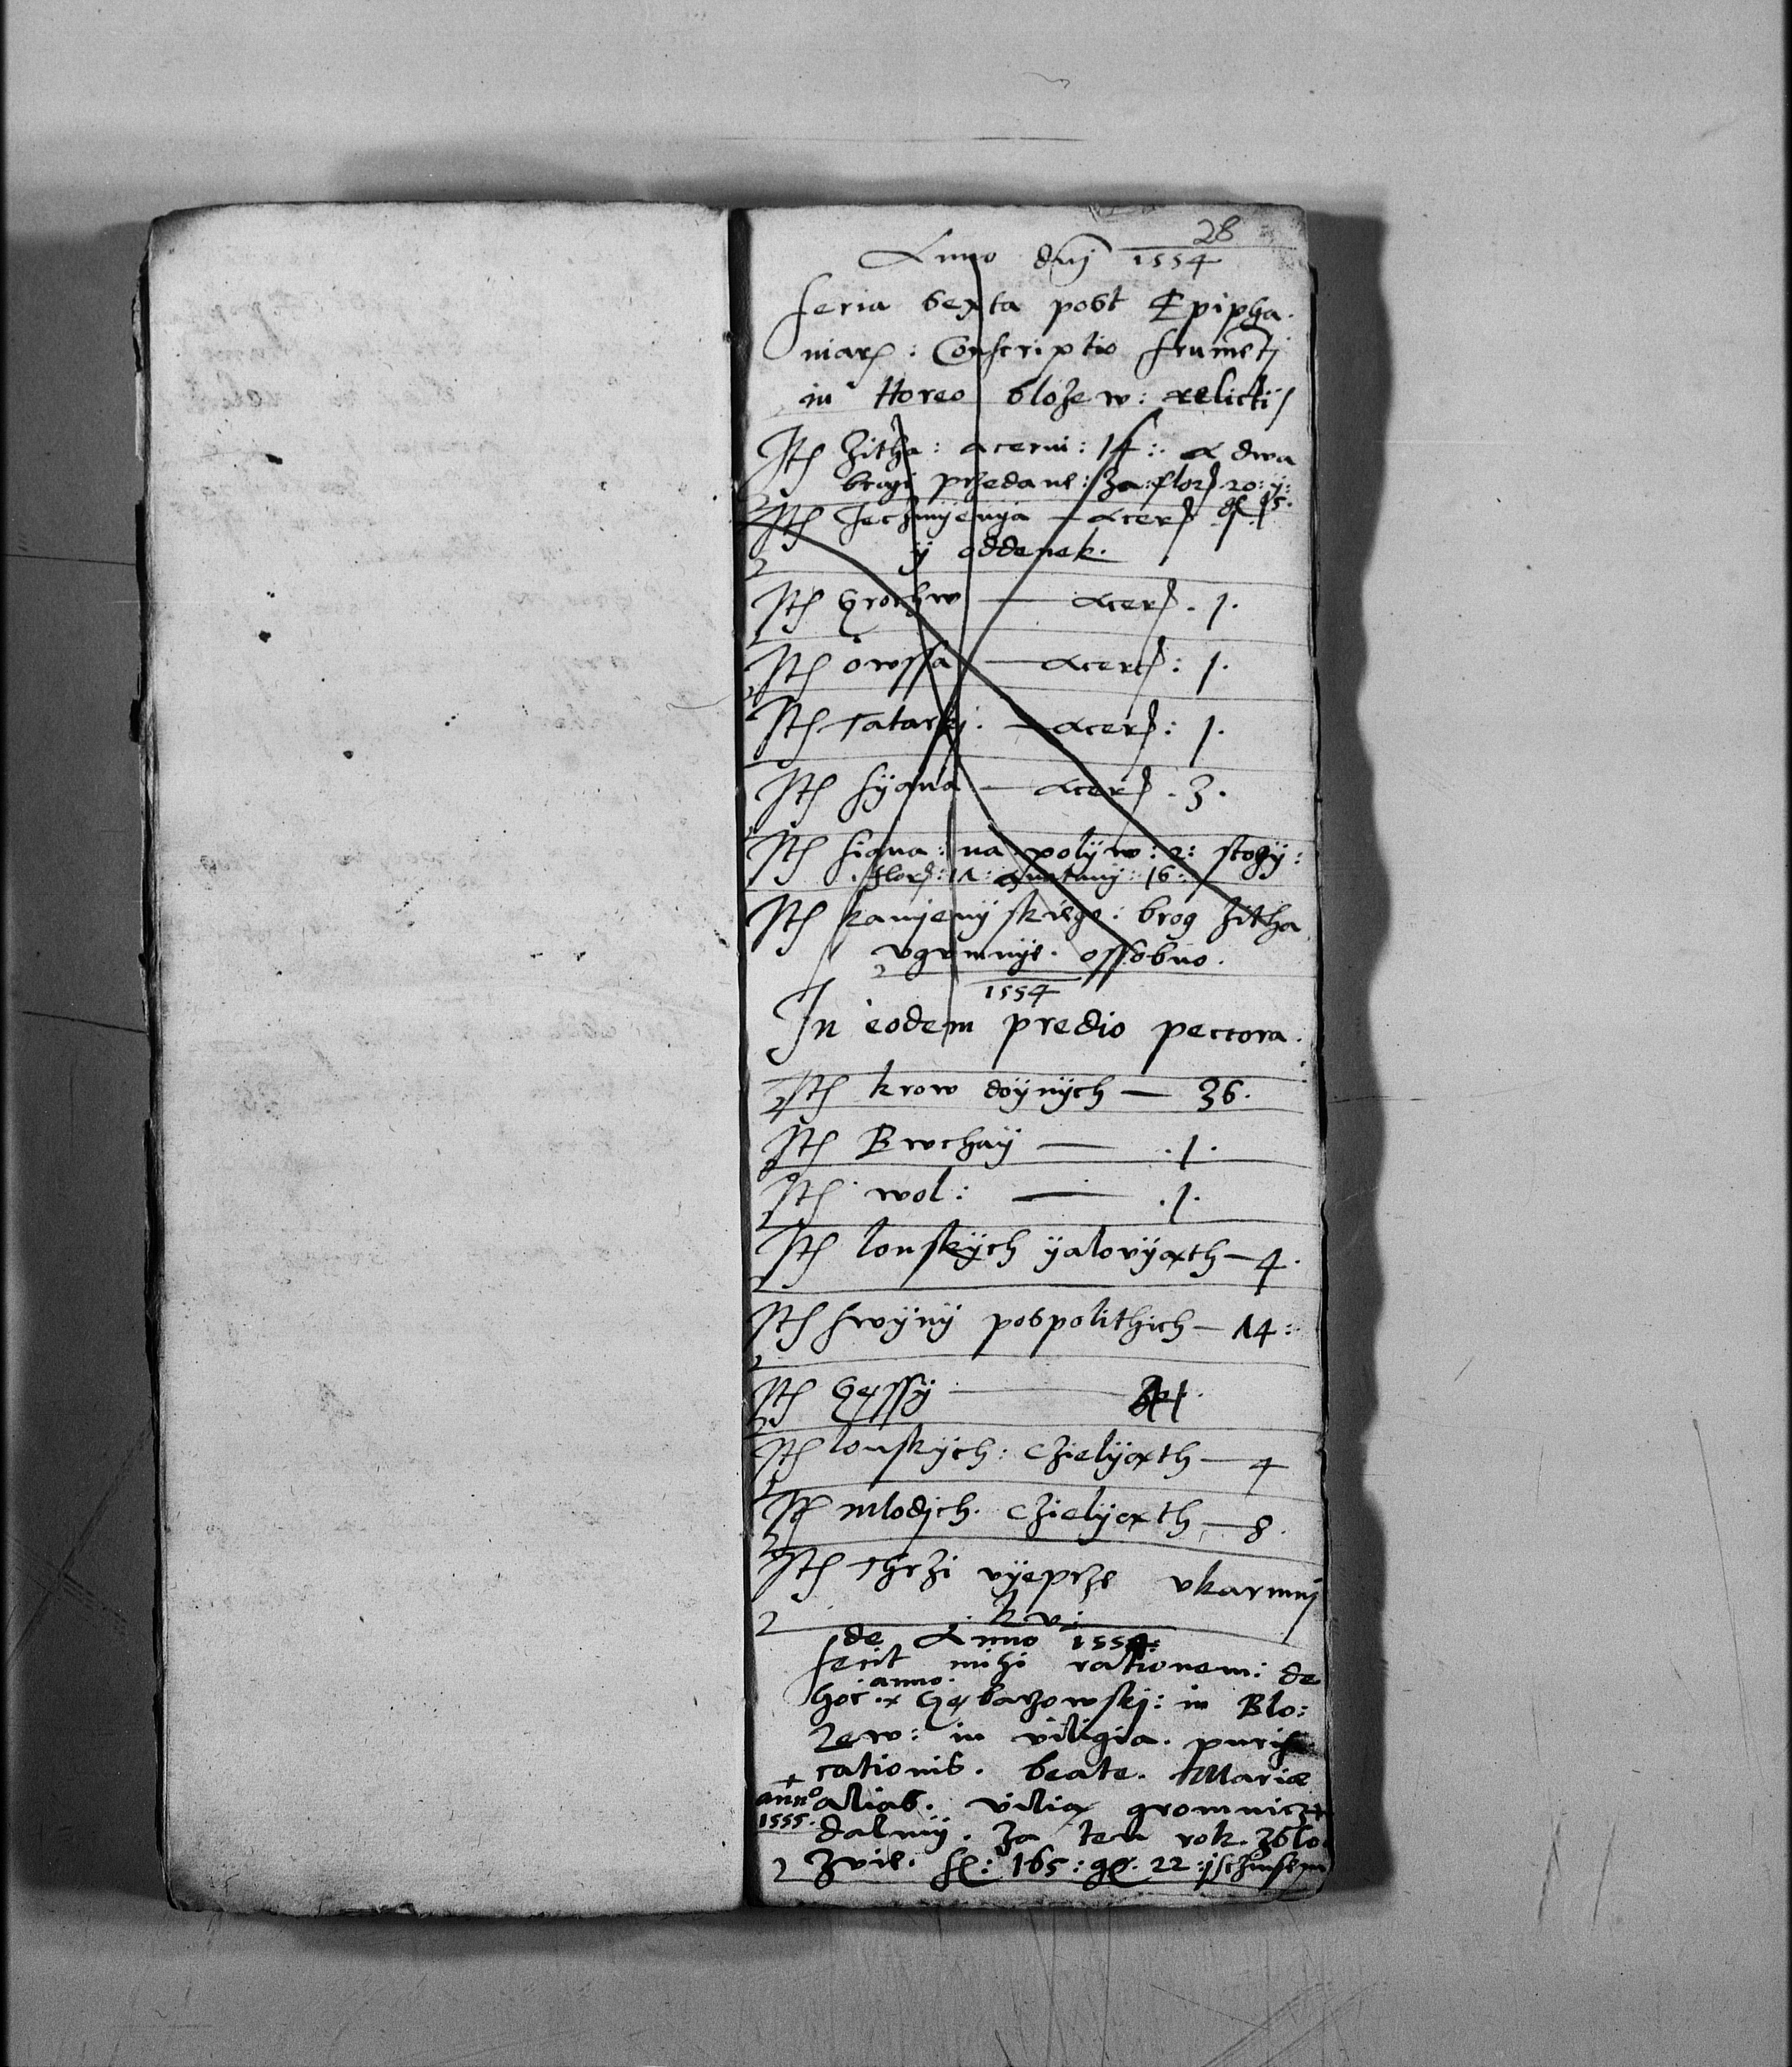 28
Anno dnj 1554
feria sexta post Epipha.
niarꝭ : Conscriptio frumētj
in Horeo blożew : relictiſ
Itꝭ żitha : acerui : 14 : a dwa
brogi przedane : za : florꝭ 20 : y :
gr 15.
Itꝭ Jeczmyenya — acerꝭ . 1 .
y oddenek .
Itꝭ Grochw — acerꝭ . 1 .
Itꝭ owssa — acerꝭ : 1 .
Itꝭ Tatarkj . — acerꝭ : 1 .
Itꝭ syana — acerꝭ . 3 .
Itꝭ siana : na polyw : 2 : stogy :
florꝭ : 11 : 16 :
Itꝭ kamjenyskiego : brog żitha
vgvmnye . ossobno .
1554
In eodem predio peccora .
Itꝭ krow doynych — 36 .
Itꝭ Bwchay — . 1 .
Itꝭ wol : — . 1 .
Itꝭ lonskych yalovyąth — 4 .
Itꝭ swyny pospolithich — 14 :
Itꝭ Gęssy —
Itꝭ lonskych : czielyąth — 4
Itꝭ mlodych . czielyąth — 8 .
Itꝭ Thrzi vyeprze vkarmnj
kv :
de Anno 1554 :
fecit mihi rationem : de
anno .
hoc x Gębarzowskj : in Blo :
zew : in viligia . purifi
cationis . beate . Mariæ
+
anno 1555 .
alias . vilią gromnicz
dalmy . za ten rok . zblo
zvie . fl : 165 : gr . 22 :